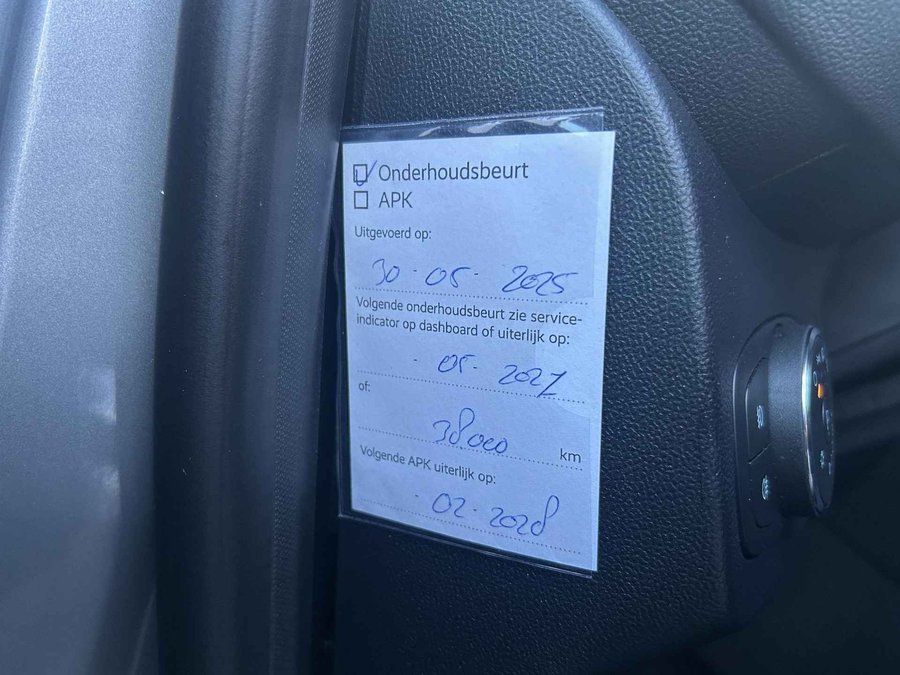 Onderhoudsbeurt
APK
Uitgevoerd op:
30 - 05 - 2025
Volgende onderhoudsbeurt zie service-
indicator op dashboard of uiterlijk op:
- 05 - 2027
of:
38000 km
Volgende APK uiterlijk op:
- 02 - 2028